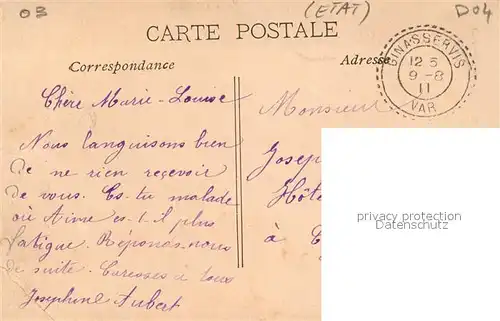 03
(ETAT)
D04
CARTE POSTALE
Correspondance
Adresse
GINASSERVIS
12 5
9 - 8
11
VAR
Chère Marie-Louise
Nous languisons bien
de ne rien reçevoir
de vous. Es-tu malade
où Aime es-t-il plus
fatigue. Réponds-nous
de suite. Caresses à tous
Josephine Aubert
Monsieur
Josep
Hôte
à
privacy protection